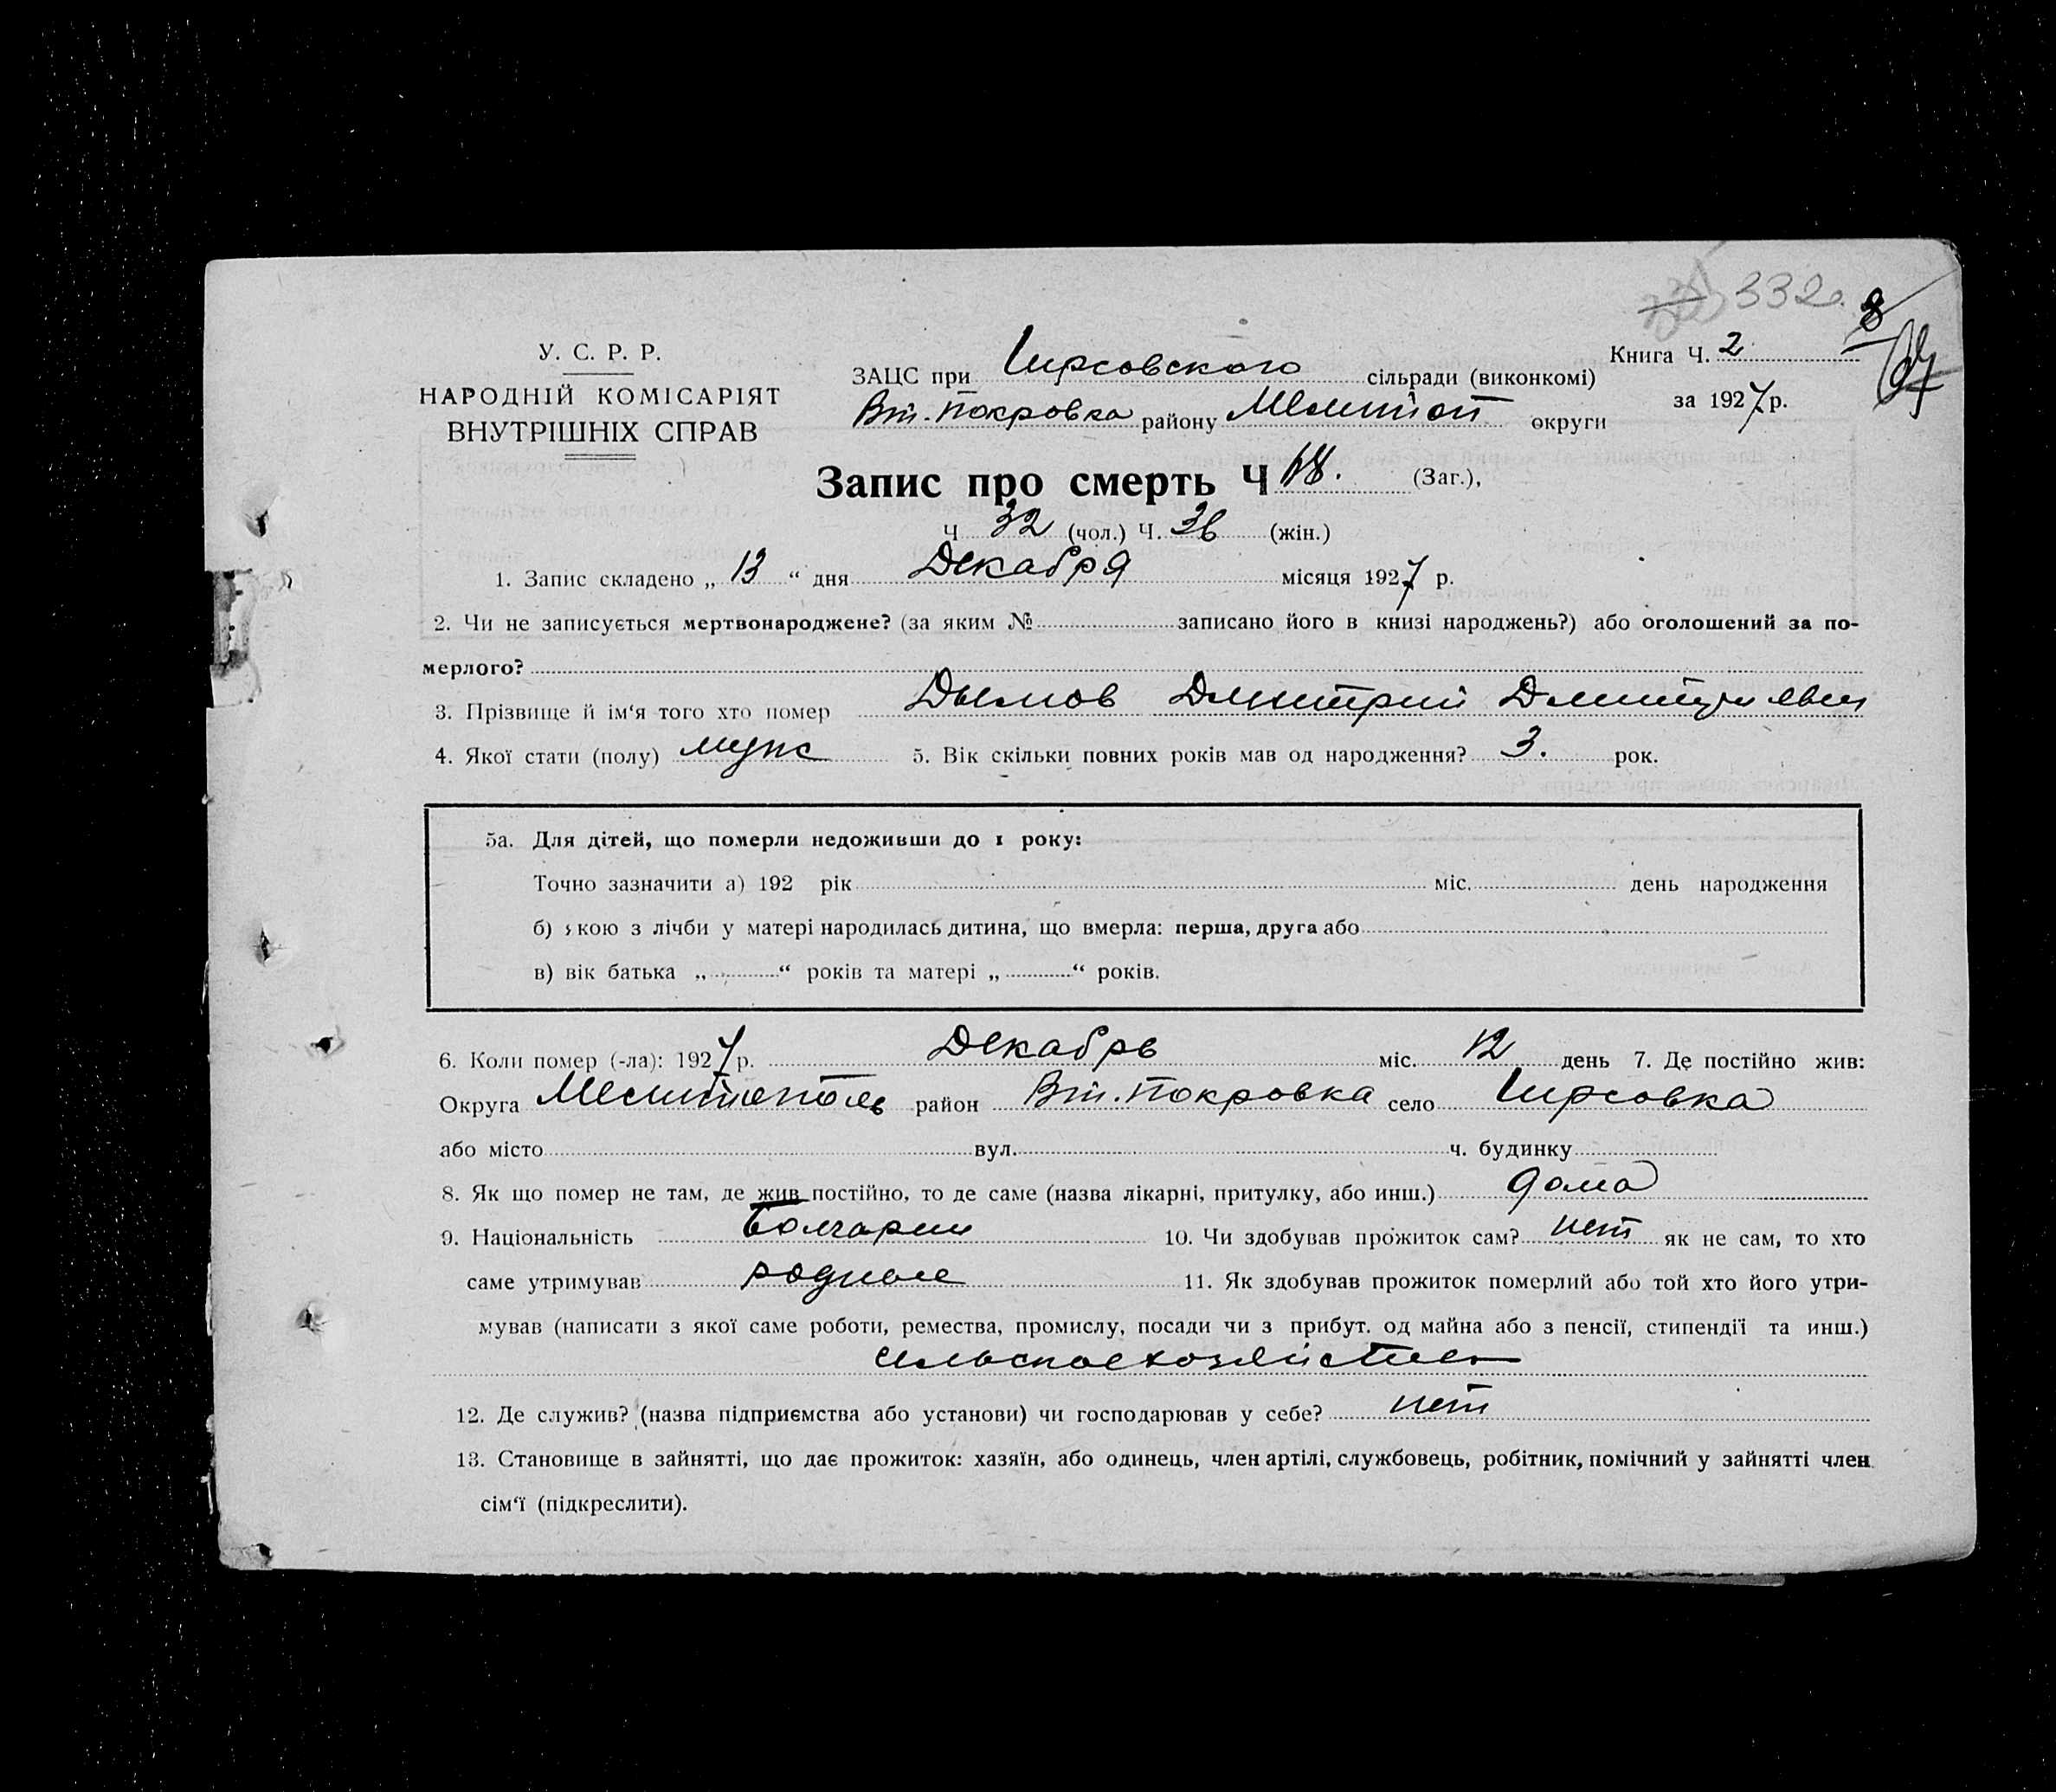 332
У. С. Р. Р.
НАРОДНІЙ КОМІСАРІЯТ
ВНУТРІШНІХ СПРАВ
Книга Ч. 2
за 1927 р.
ЗАЦС при Гирсовского сільради (виконкомі)
Вт.-Покровка району Мелитоп округи
Запис про смерть Ч 68. (Заг.),
Ч 32 (чол.) Ч. 36 (жін.)
1. Запис складено „ 13 “ дня Декабря місяця 1927 р.
2. Чи не записується мертвонароджене? (за яким № записано його в книзі народжень?) або оголошений за по-
мерлого?
3. Прізвище й ім‘я того хто помер Дымов Дмитрий Дмитриевич
4. Якої стати (полу) мужс 5. Вік скільки повних років мав од народження? 3. рок.
5а. Для дітей, що померли недоживши до 1 року:
Точно зазначити а) 192 рік міс. день народження
б) кою з лічби у матері народилась дитина, що вмерла: перша, друга або
в) вік батька „ “ років та матері „ “ років.
6. Коли помер (-ла): 1927 р. Декабрь міс. 12 день 7. Де постійно жив:
Округа Мелитополь район Вт.-Покровка село Гирсовка
або місто вул. ч. будинку
8. Як що помер не там, де жив постійно, то де саме (назва лікарні, притулку, або инш.) дома
9. Національність Болгарин 10. Чи здобував прожиток сам? нет як не сам, то хто
саме утримував родные 11. Як здобував прожиток померлий або той хто його утри-
мував (написати з якої саме роботи, ремества, промислу, посади чи з прибут. од майна або з пенсії, стипендії та инш.)
12. Де служив? (назва підприємства або установи) чи господарював у себе? нет
13. Становище в зайнятті, що дає прожиток: хазяїн, або одинець, член артілі, службовець, робітник, помічний у зайнятті член
сім‘ї (підкреслити).